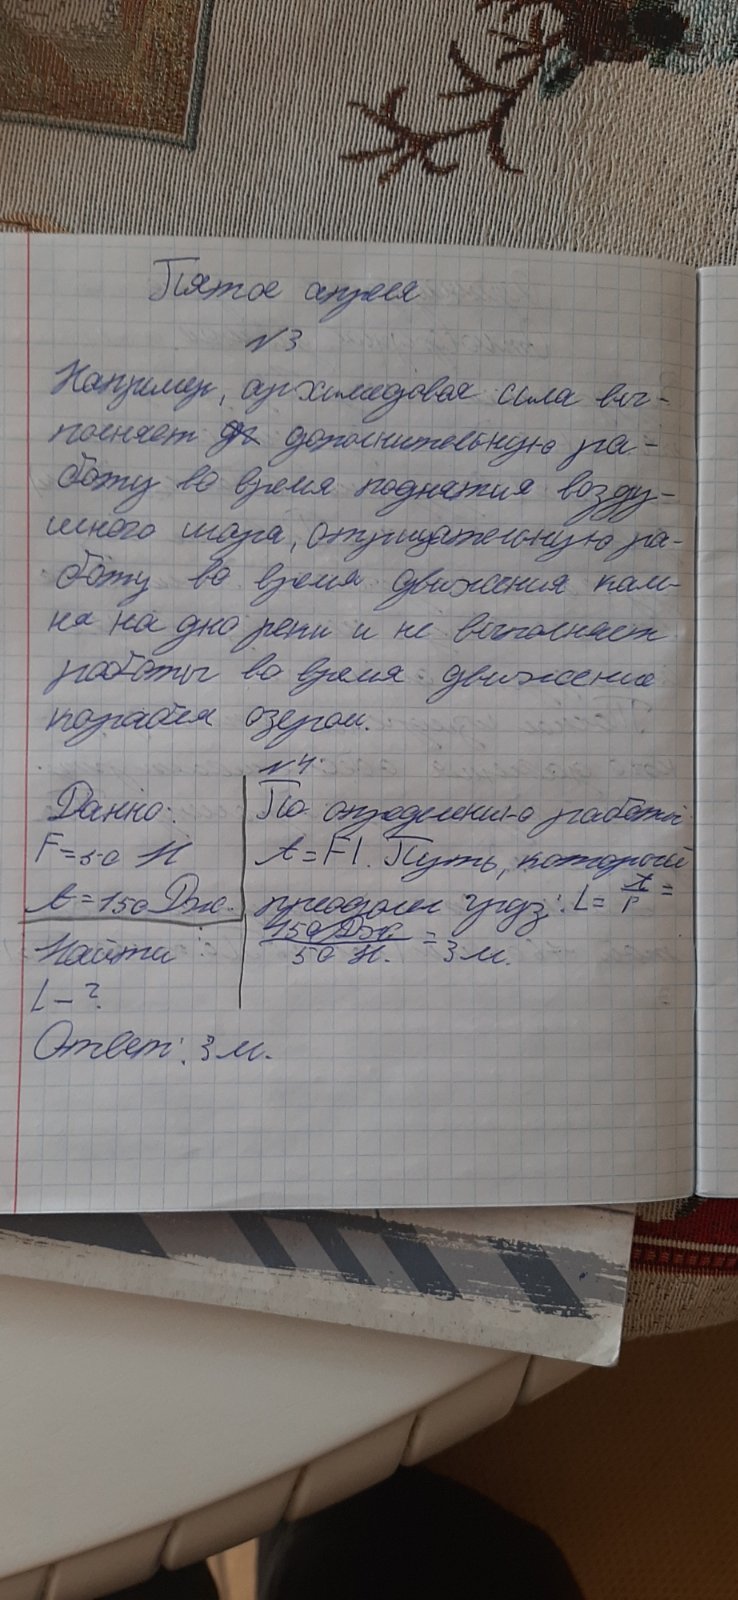 Пятое апреля
№3
Например, архимедовая сила вы-
полняет дополнительную ра-
боту во время поднятия возду-
шного шара, отрицательную ра-
боту во время движения кам-
ня на дно реки и не выполняет
работы во время движение
корабля озером.
№4
Данно:
F=50 Н
A=150 Дж.
Найти
L-?
По определению работы
A=Fl. Путь, который
преодолел груз: L= A/F =
150 Дж. / 50 Н. = 3 м.
Ответ: 3 м.